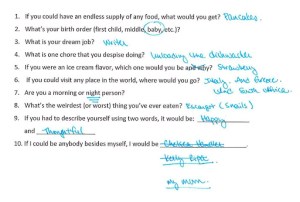 1. If you could have an endless supply of any food, what would you get? Pancakes.
2. What's your birth order (first child, middle, baby, etc.)?
3. What is your dream job? Writer
4. What is one chore that you despise doing? Unloading the dishwasher
5. If you were an ice cream flavor, which one would you be and why? Strawberry
6. If you could visit any place in the world, where would you go? Italy, and Greece.
7. Are you a morning or night person? and South Africa.
8. What's the weirdest (or worst) thing you've ever eaten? Escargot (snails)
9. If you had to describe yourself using two words, it would be: Happy
and thoughtful
10. If I could be anybody besides myself, I would be Chelsea Handler
my mum.